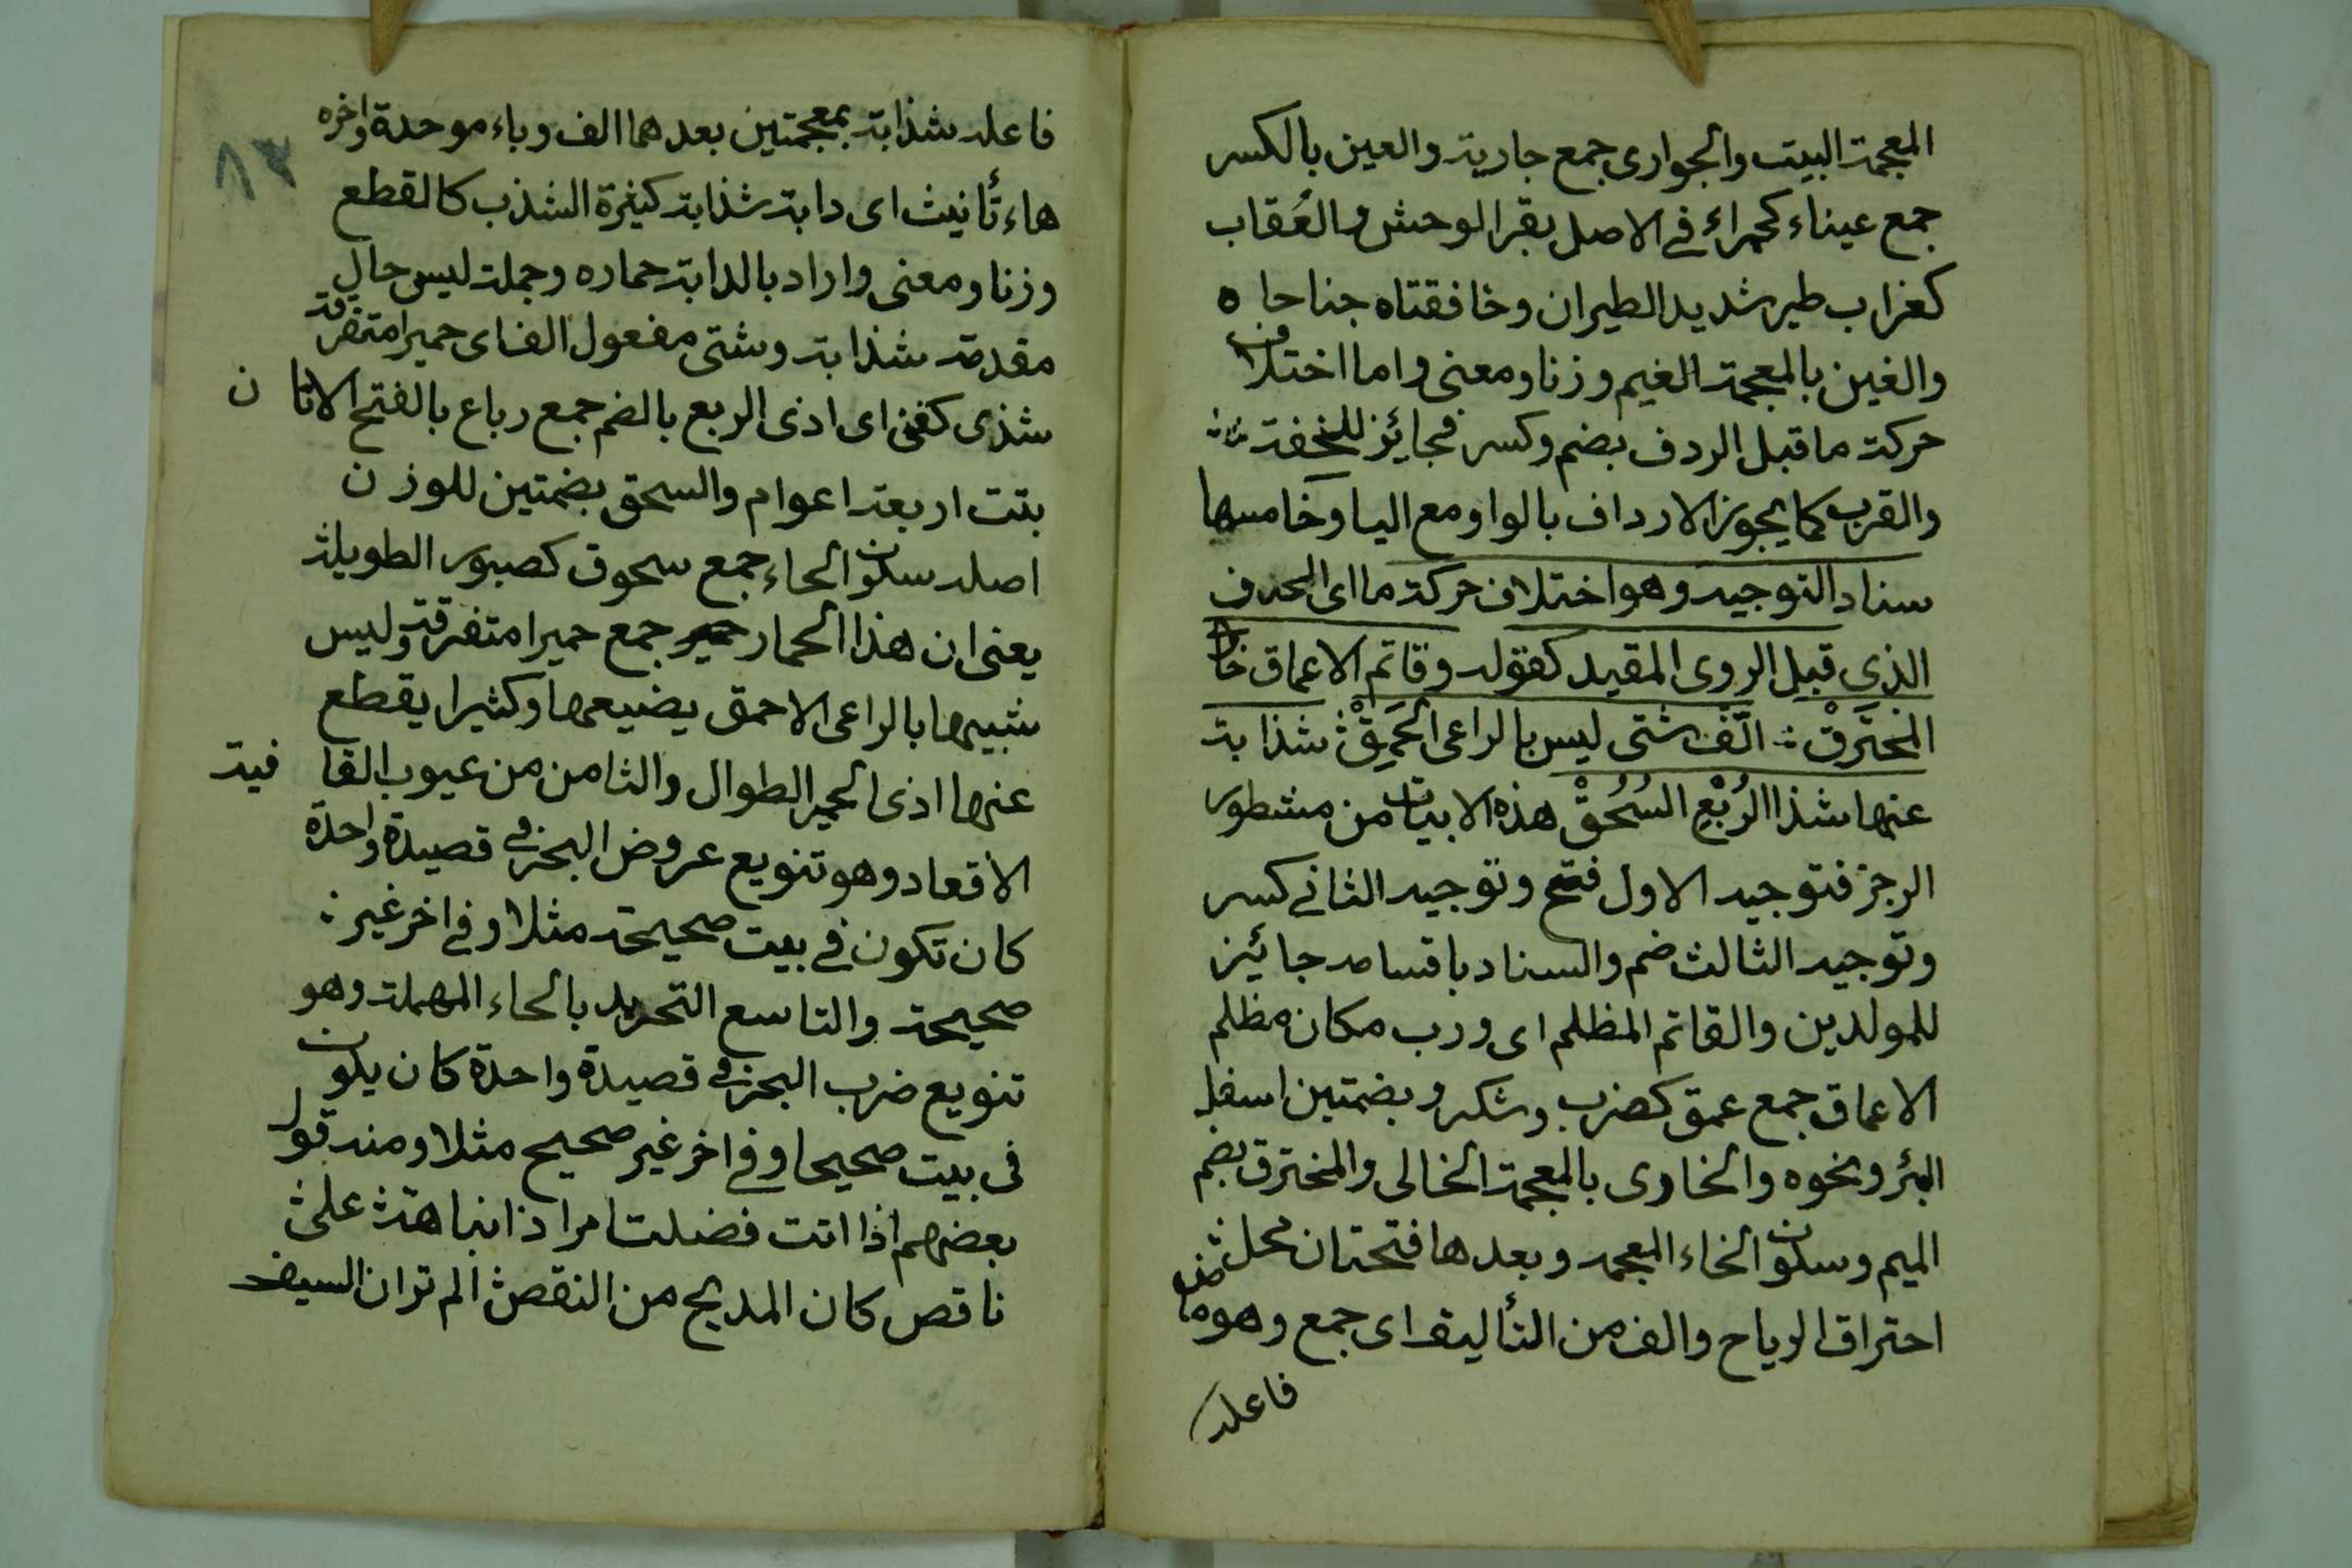 المعجمة البيت والجوارى جمع جارية والعين بالكسر
جمع عيناء كحمراء في الاصل بقر الوحش والعُقاب
كغراب طير شديد الطيران وخافقتاه جناحاه
والغين بالمعجمة الغيم وزنا ومعنى واما اختلاف
حركة ما قبل الردف بضم وكسر فجائز للخفة
والقرب كما يجوز الارداف بالواو مع اليا وخامسها
سناد التوجيه وهو اختلاف حركة ما اى الحرف
الذي قبل الروى المقيد كقوله وقاتم الاعماق خاوى
المخترَقْ ∴ الّفَ شتى ليس بالراعى الحَمِقْ شذابة
عنها شذا الرُبْعِ السُحُقْ هذه الابيات من مشطور
الرجز فتوجيه الاول فتح وتوجيه الثانى كسر
وتوجيه الثالث ضم والسناد باقسامه جائز
للمولدين والقاتم المظلم اى ورب مكان مظلم
الاعماق جمع عمق كضرب وشكر وبضمتين اسفل
البئر ونحوه والخاوى بالمعجمة الخالى والمخترق بضم
الميم وسكون الخاء المعجمه وبعدها فتحتان محل
احتراق الرياح والف من التأليف اى جمع وهو ماض
فاعله
٨٣
فاعله شذابة بمعجمتين بعدهما الف وباء موحدة واخره
هاء تأنيث اى دابة شذابة كثيرة الشذب كالقطع
وزنا ومعنى واراد بالدابة حماره وجملة ليس حال
مقدمة شذابة وشتى مفعول الف اى حميرا متفرقة
شذى كفنى اى اذى الربع بالضم جمع رباع بالفتح الاتان
بنت اربعة اعوام والسحق بضمتين للوزن
اصله سكون الحاء جمع سحوق كصبور الطويلة
يعنى ان هذا الحمار جمع حميرا متفرقة وليس
شبيها بالراعى الاحمق يضيعها وكثيرا يقطع
عنها اذى الحمير الطوال والثامن من عيوب القافية
الاقعاد وهو تنويع عروض البحر في قصيدة واحدة
كان تكون في بيت صحيحة مثلا وفي اخر غير
صحيحة والتاسع التحريد بالحاء المهملة وهو
تنويع ضرب البحر في قصيدة واحدة كان يكون
فى بيت صحيحا وفي اخر غير صحيح مثلا ومنه قول
بعضهم اذا انت فضلت امرا ذا نباهة على
ناقص كان المديح من النقص الم تر ان السيف